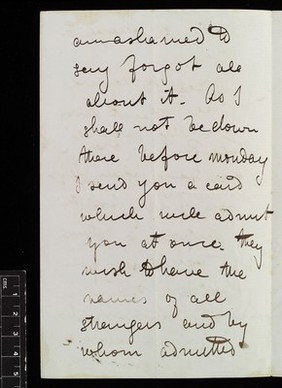 am ashamed to
say forgot all
about it. As I
shall not be down
there before monday
I send you a card
which will admit
you at once. they
wish to have the
names of all
strangers and by
whom admitted
CMS
1
2
3
4
5